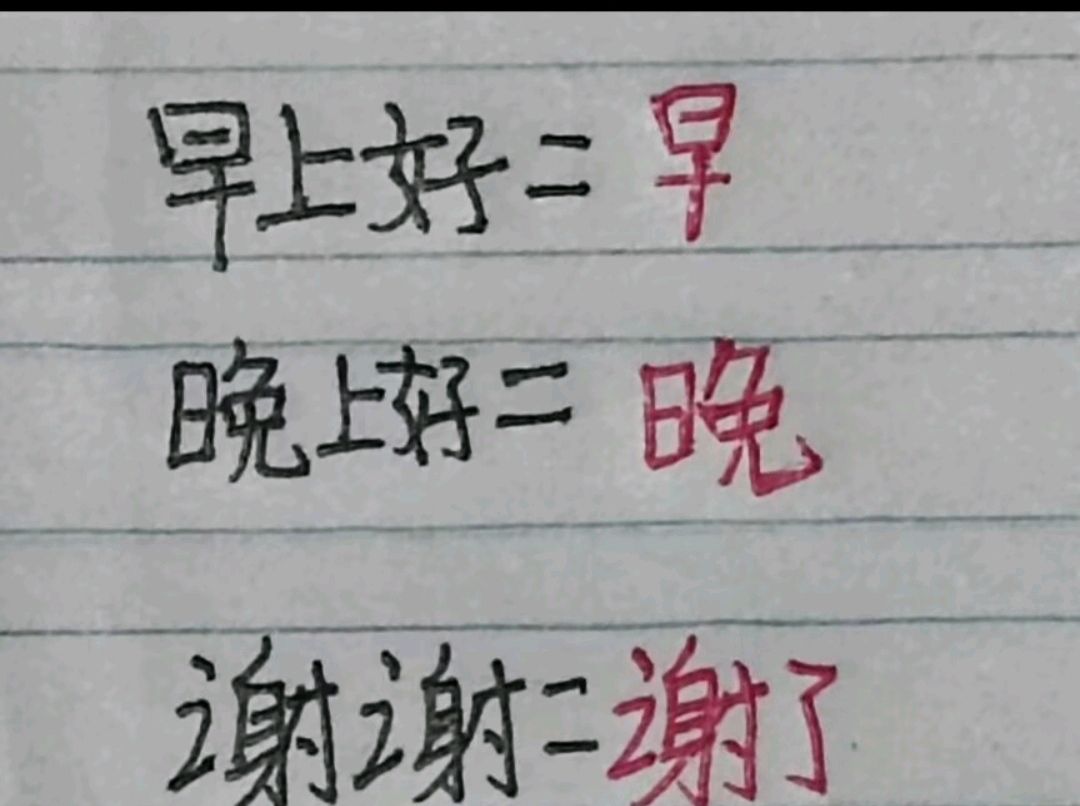 早上好=早
晚上好=晚
谢谢=谢了